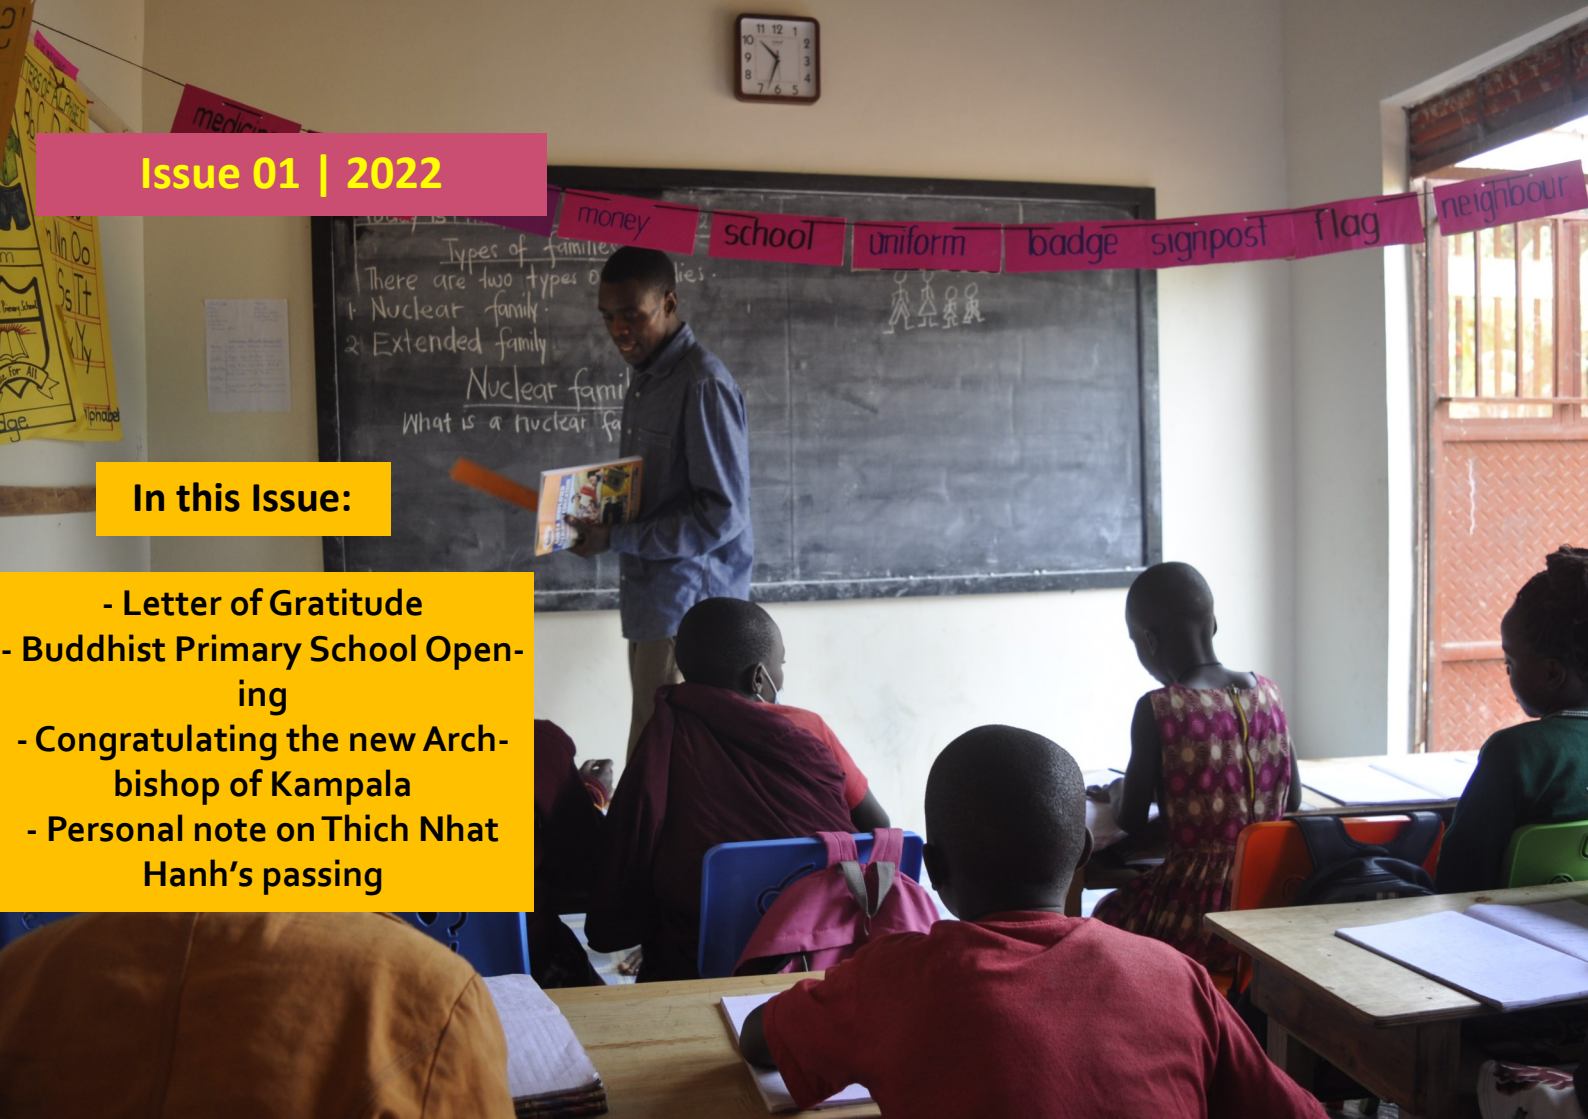 11 12 1
10 2
9 3
8 4
7 6 5
Issue 01 | 2022
money
school
uniform
badge
signpost
flag
neighbour
Types of families
There are two types
1. Nuclear family.
2 Extended family
Nuclear
What is a nuclear
Nn Oo
Ss Tt
Yy
For All
In this Issue:
- Letter of Gratitude
- Buddhist Primary School Open-
ing
- Congratulating the new Arch-
bishop of Kampala
- Personal note on Thich Nhat
Hanh’s passing